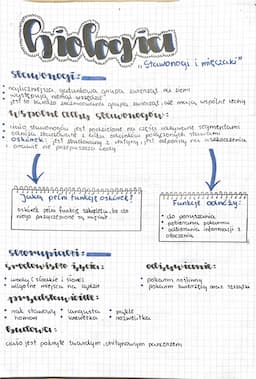 Biologia
"Stawonogi i mięczaki"
Stawonogi:
• najliczniejsza, gatunkowa grupa zwierząt na ziemi
• występują niemal wszędzie
• jest to bardzo zróżnicowana grupa zwierząt, ale mają wspólne cechy
Wspólne cechy stawonogów:
• ciało stawonogów jest podzielone na części nazywane segmentami
• oskórek: jest zbudowany z chityny, jest odporny na uszkodzenia
• prawie nie przepuszcza wody
Jaką pełni funkcję oskórek?
oskórek pełni funkcję szkieletu, bo do
niego przyczepione są mięśnie.
Funkcje odnóży:
• do poruszania
• pobierania pokarmu
• odbierania informacji z
otoczenia
Skorupiaki:
Środowisko życia:
• wody słodkie i słone
• wilgotne miejsca na lądzie
Odżywianie:
• pokarm roślinny
• pokarm zwierzęcy oraz szczątki
Przedstawiciele:
• rak stawowy • langusta • pąkle
• homar • krewetka • rozwielitka
Budowa:
ciało jest pokryte twardym, chitynowym pancerzem